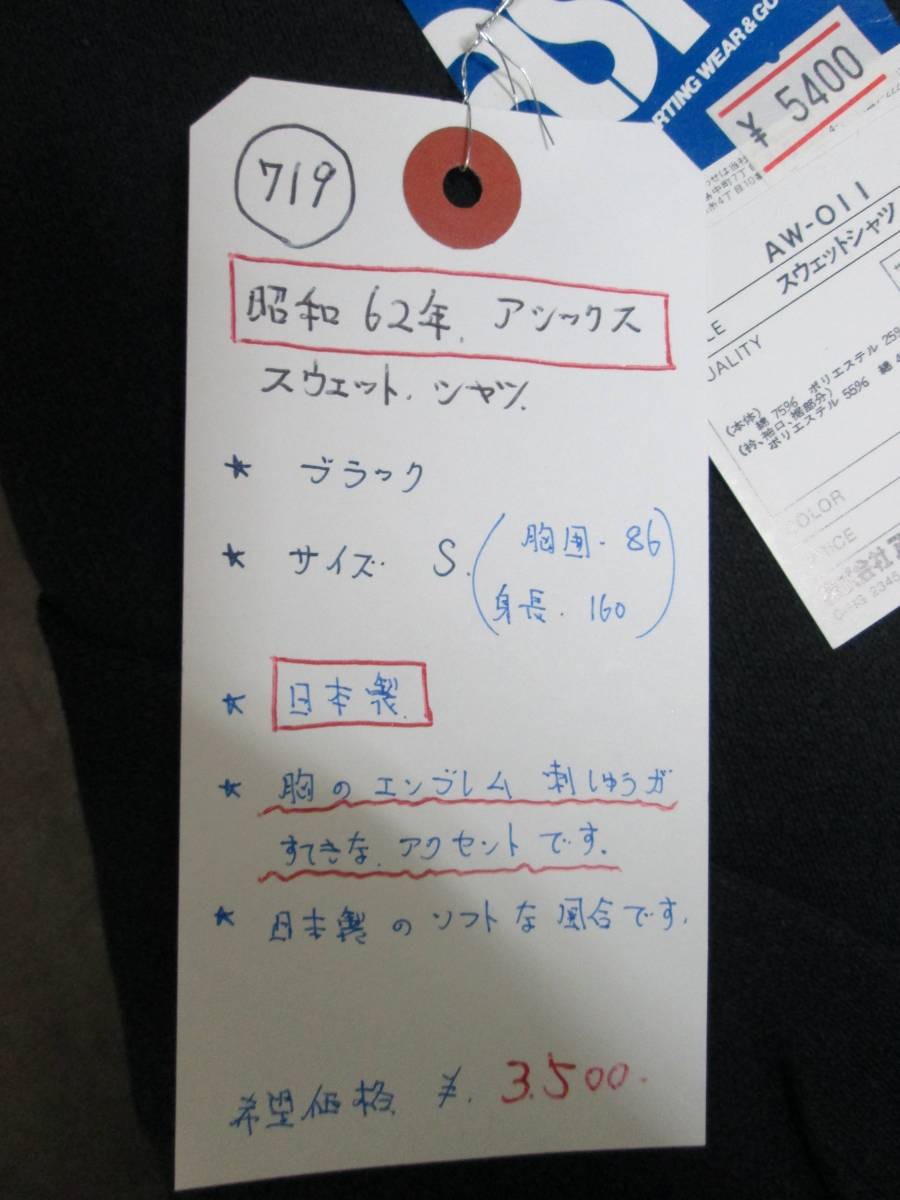 719
昭和62年. アシックス
スウェット. シャツ.
★ ブラック
★ サイズ S. (胸囲. 86
身長. 160)
★ 日本製.
★ 胸のエンブレム 刺しゅうが
すてきな. アクセントです.
★ 日本製のソフトな風合です.
希望価格 ¥. 3.500.
RTING WEAR & GO
¥ 5400
AW-011
スウェットシャツ
UALITY
(本体)
綿 75% ポリエステル 25%
(衿、袖口、裾部分)
ポリエステル 55% 綿 4
COLOR